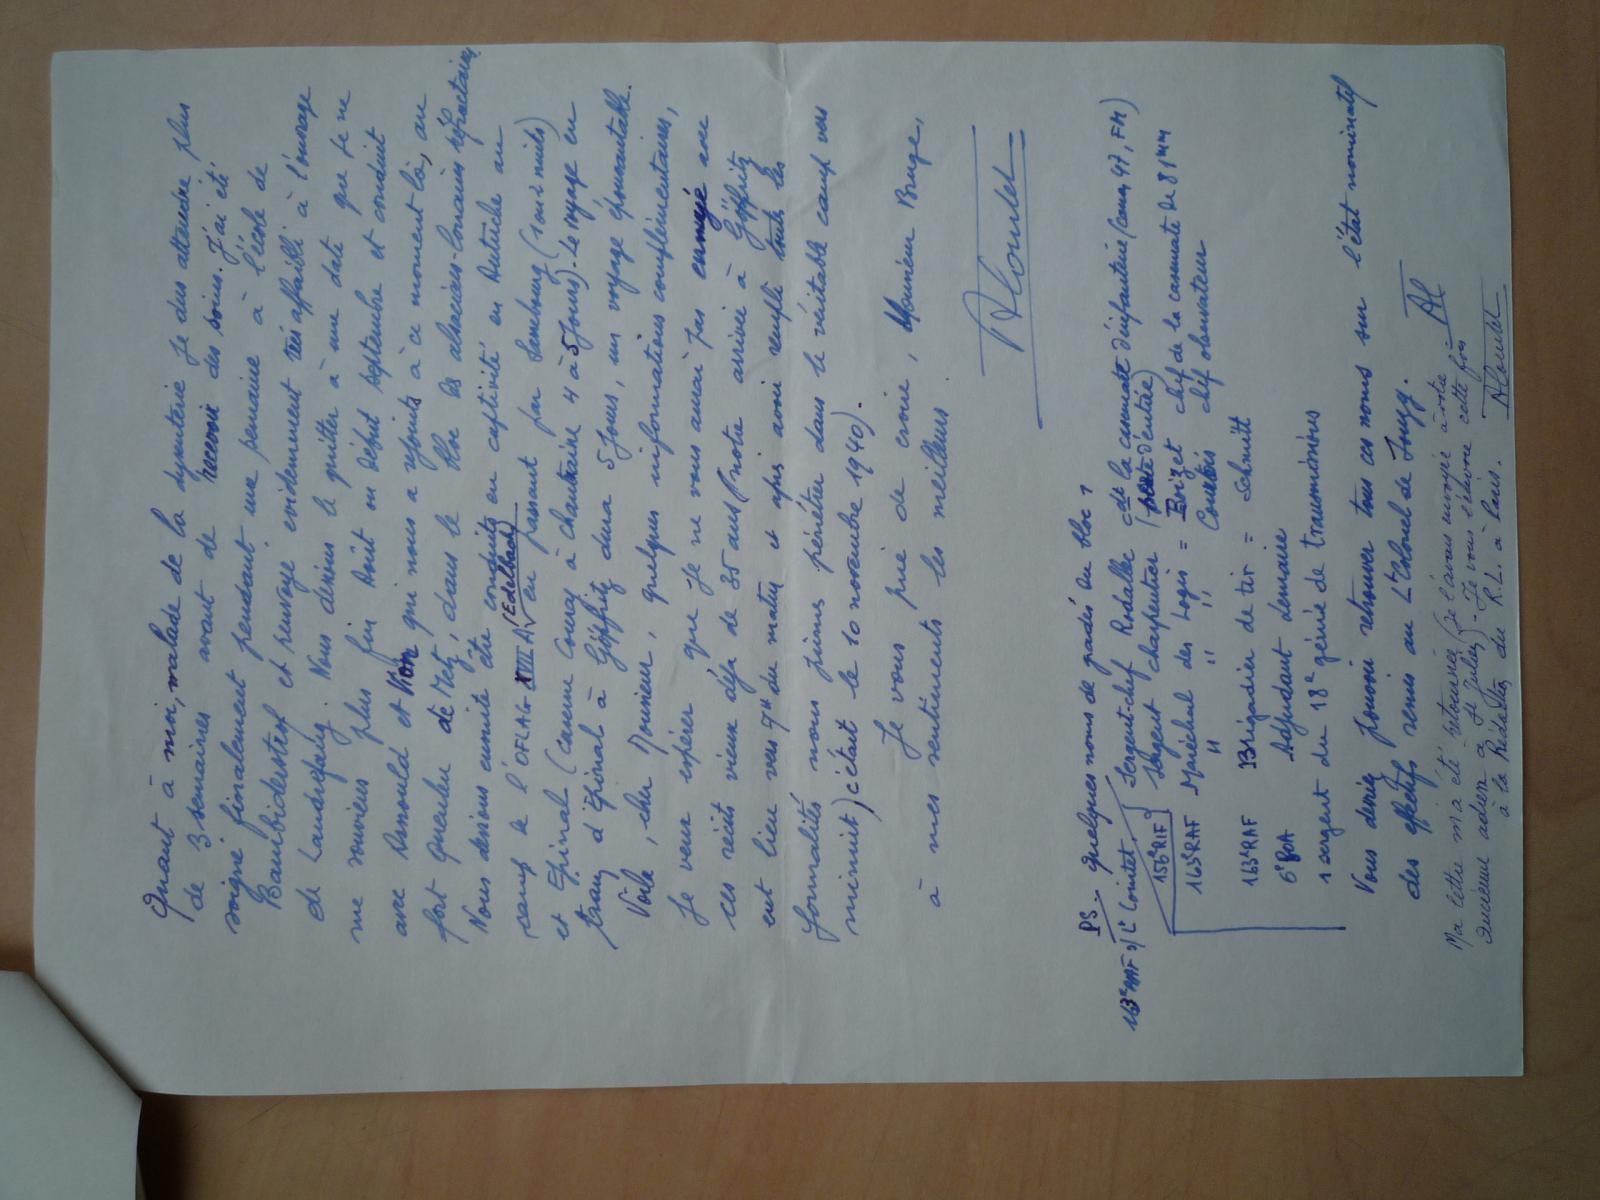 Quant à moi, malade de la dysenterie je dus attendre plus
de 3 semaines avant de recevoir des soins. J'ai été
soigné finalement pendant une semaine à l'école de
Bambiderstrof et renvoyé evidemment très affaibli à l'ouvrage
de Laudrefang. Nous dûmes le quitter à une date que je ne
me souviens plus fin Août ou début septembre et conduit
avec Arnould et qui nous a rejoints à ce moment là, au
fort Queuleu de Metz, dans le bloc des alsaciens-lorrains réfractaires
Nous devions ensuite être conduits en captivité en Autriche au
camp de l'OFLAG XVII A (Edelbach) en passant par Sarrebourg (1 ou 2 nuits)
et Epinal (caserne Courcy à Chantraine 4 à 5 jours) - le voyage en
train d'Epinal à Göpfritz dura 5 jours, un voyage épouvantable.
Voilà, cher Monsieur, quelques informations complémentaires,
je veux espérer que je ne vous aurai pas ennuyé avec
ces récits vieux déjà de 35 ans (notre arrivée à Göpfritz
eut lieu vers 7H du matin et après avoir rempli toutes les
formalités nous pûmes pénétrer dans le véritable camp vers
minuit) c'était le 10 novembre 1940).
Je vous prie de croire, Monsieur Bruge,
à mes sentiments les meilleurs.
PS - quelques noms de gradés du bloc 1
163e RAF Lt Cointet
156e RIF Sergent-chef Rodaller cdt la casemate d'infanterie (canon 47, FM)
Sergent Charpentier (d'entrée)
163e RAF Maréchal des Logis = Boizet chef de la casemate de 81mm
" " " chef observateur
163e RAF Brigadier de tir = Schmitt
6e Adjudant Lemaire
1 sergent du 18e génie de transmissions
Vous devez pouvoir retrouver tous ces noms sur l'état nominatif
des effectifs remis au Lt Colonel de Souzy.
Ma lettre m'a été retournée (je l'avais envoyée à votre
ancienne adresse à St Julien - Je vous réécrivis cette fois
à la Rédaction du R.L. à Paris.